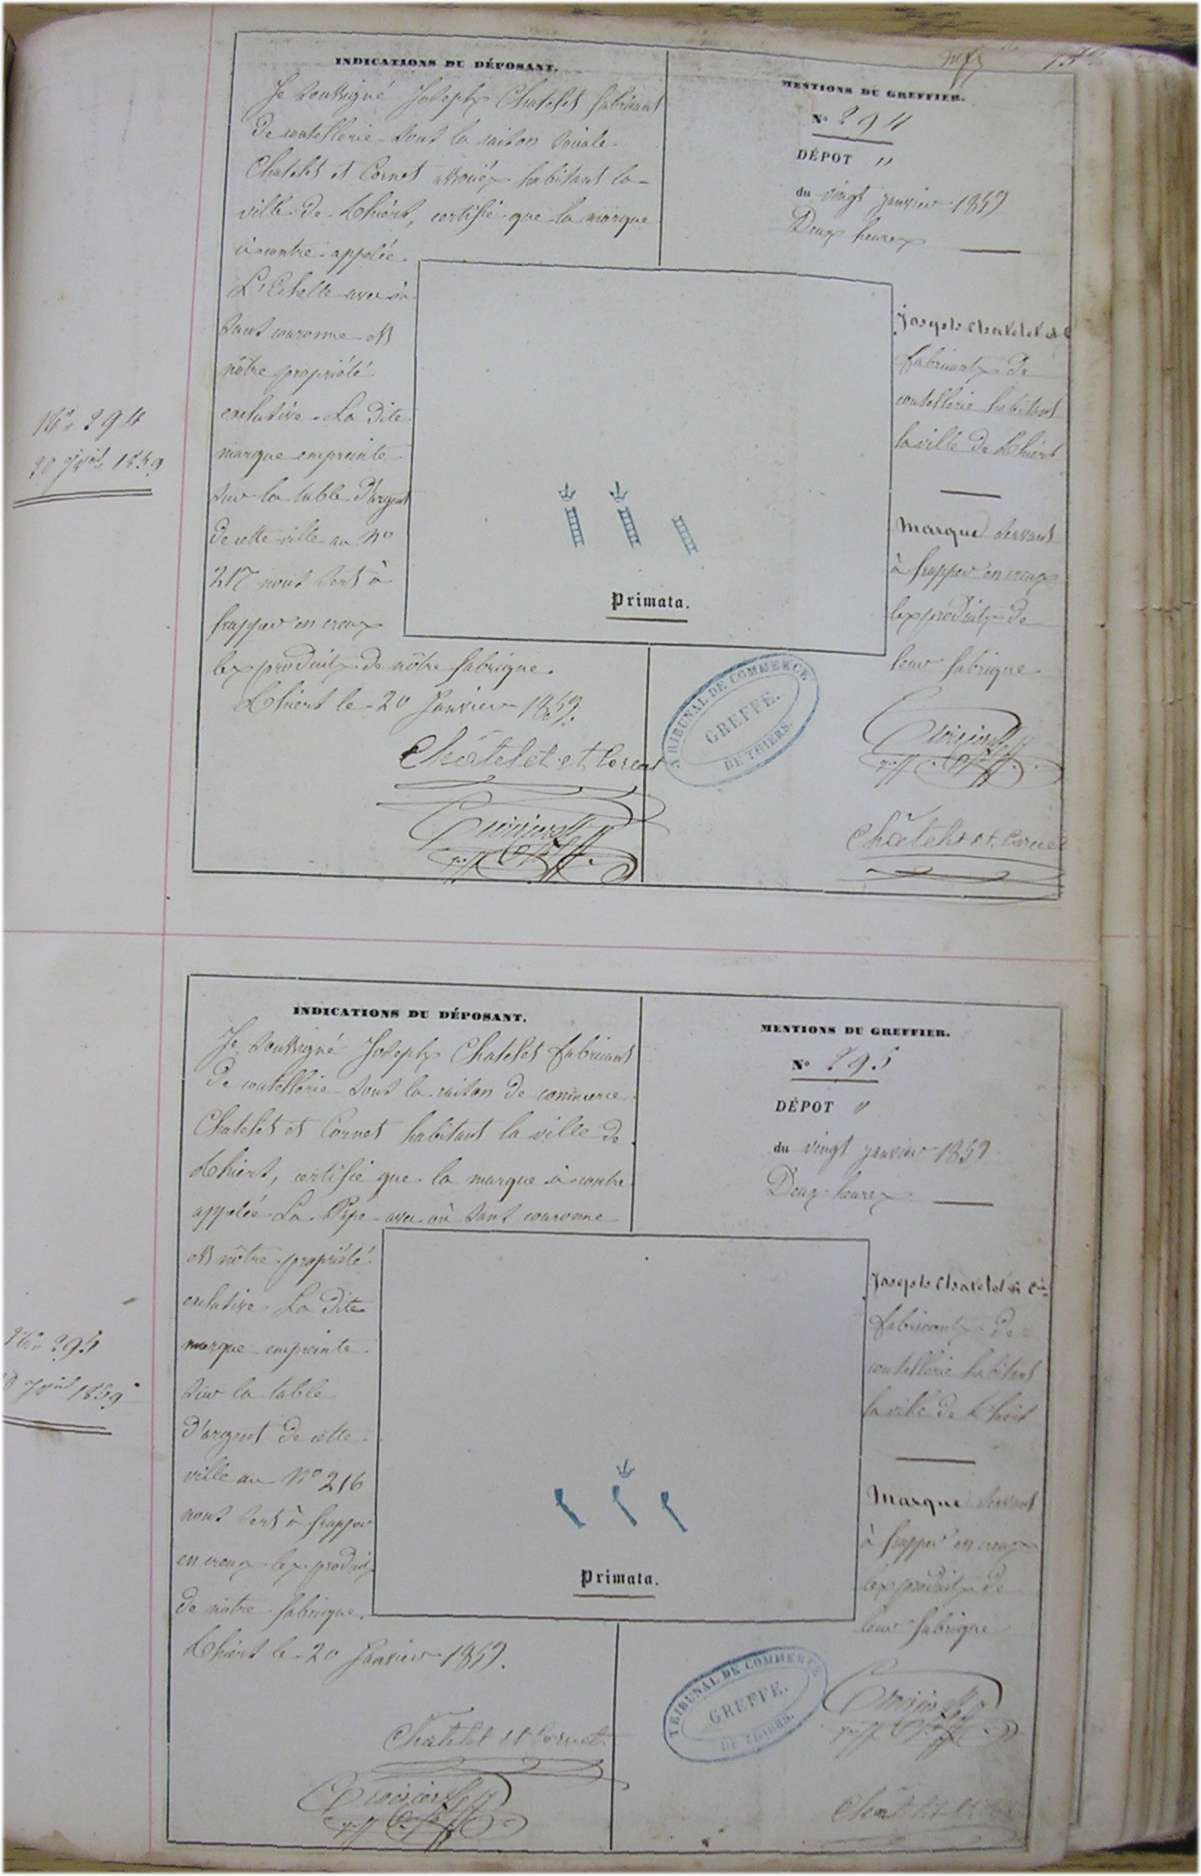 INDICATIONS DU DÉPOSANT.
Je soussigné Joseph Chatelet fabricant
de coutellerie sous la raison sociale
Chatelet et Cornet associés habitant la
ville de Thiers, certifie que la marque
ci contre appelée
L'Echelle avec ou
sans couronne est
nôtre propriété
exclusive. La dite
marque empreinte
sur la table d'argent
de cette ville au No
217 nous sert à
frapper en creux
les produits de nôtre fabrique.
Thiers le 20 Janvier 1859.
Châtelet et Cornet
MENTIONS DU GREFFIER.
No 294
DÉPOT "
du vingt janvier 1859
Deux heures
Joseph Chatelet et
fabricants de
coutellerie habitant
la ville de Thiers
Marque servant
à frapper en creux
les produits de
leur fabrique
Châtelet et Cornet
Primata.
TRIBUNAL DE COMMERCE
GREFFE.
DE THIERS.
No 294
20 1859
INDICATIONS DU DÉPOSANT.
Je soussigné Joseph Chatelet fabricant
de coutellerie sous la raison de commerce
Chatelet et Cornet habitant la ville de
Thiers, certifie que la marque ci contre
appelée La Pipe avec où sans couronne
est nôtre propriété
exclusive. La dite
marque empreinte
sur la table
d'argent de cette
ville au No 216
nous sert à frapper
en creux les produits
de notre fabrique.
Thiers le 20 Janvier 1859.
Chatelet et Cornet
MENTIONS DU GREFFIER.
No 295
DÉPOT "
du vingt janvier 1859
Deux heures
Joseph Chatelet et Cie
fabricants de
coutellerie habitant
la ville de Thiers
Marque servant
à frapper en creux
les produits de
leur fabrique
Primata.
TRIBUNAL DE COMMERCE
GREFFE.
DE THIERS.
No 295
1859